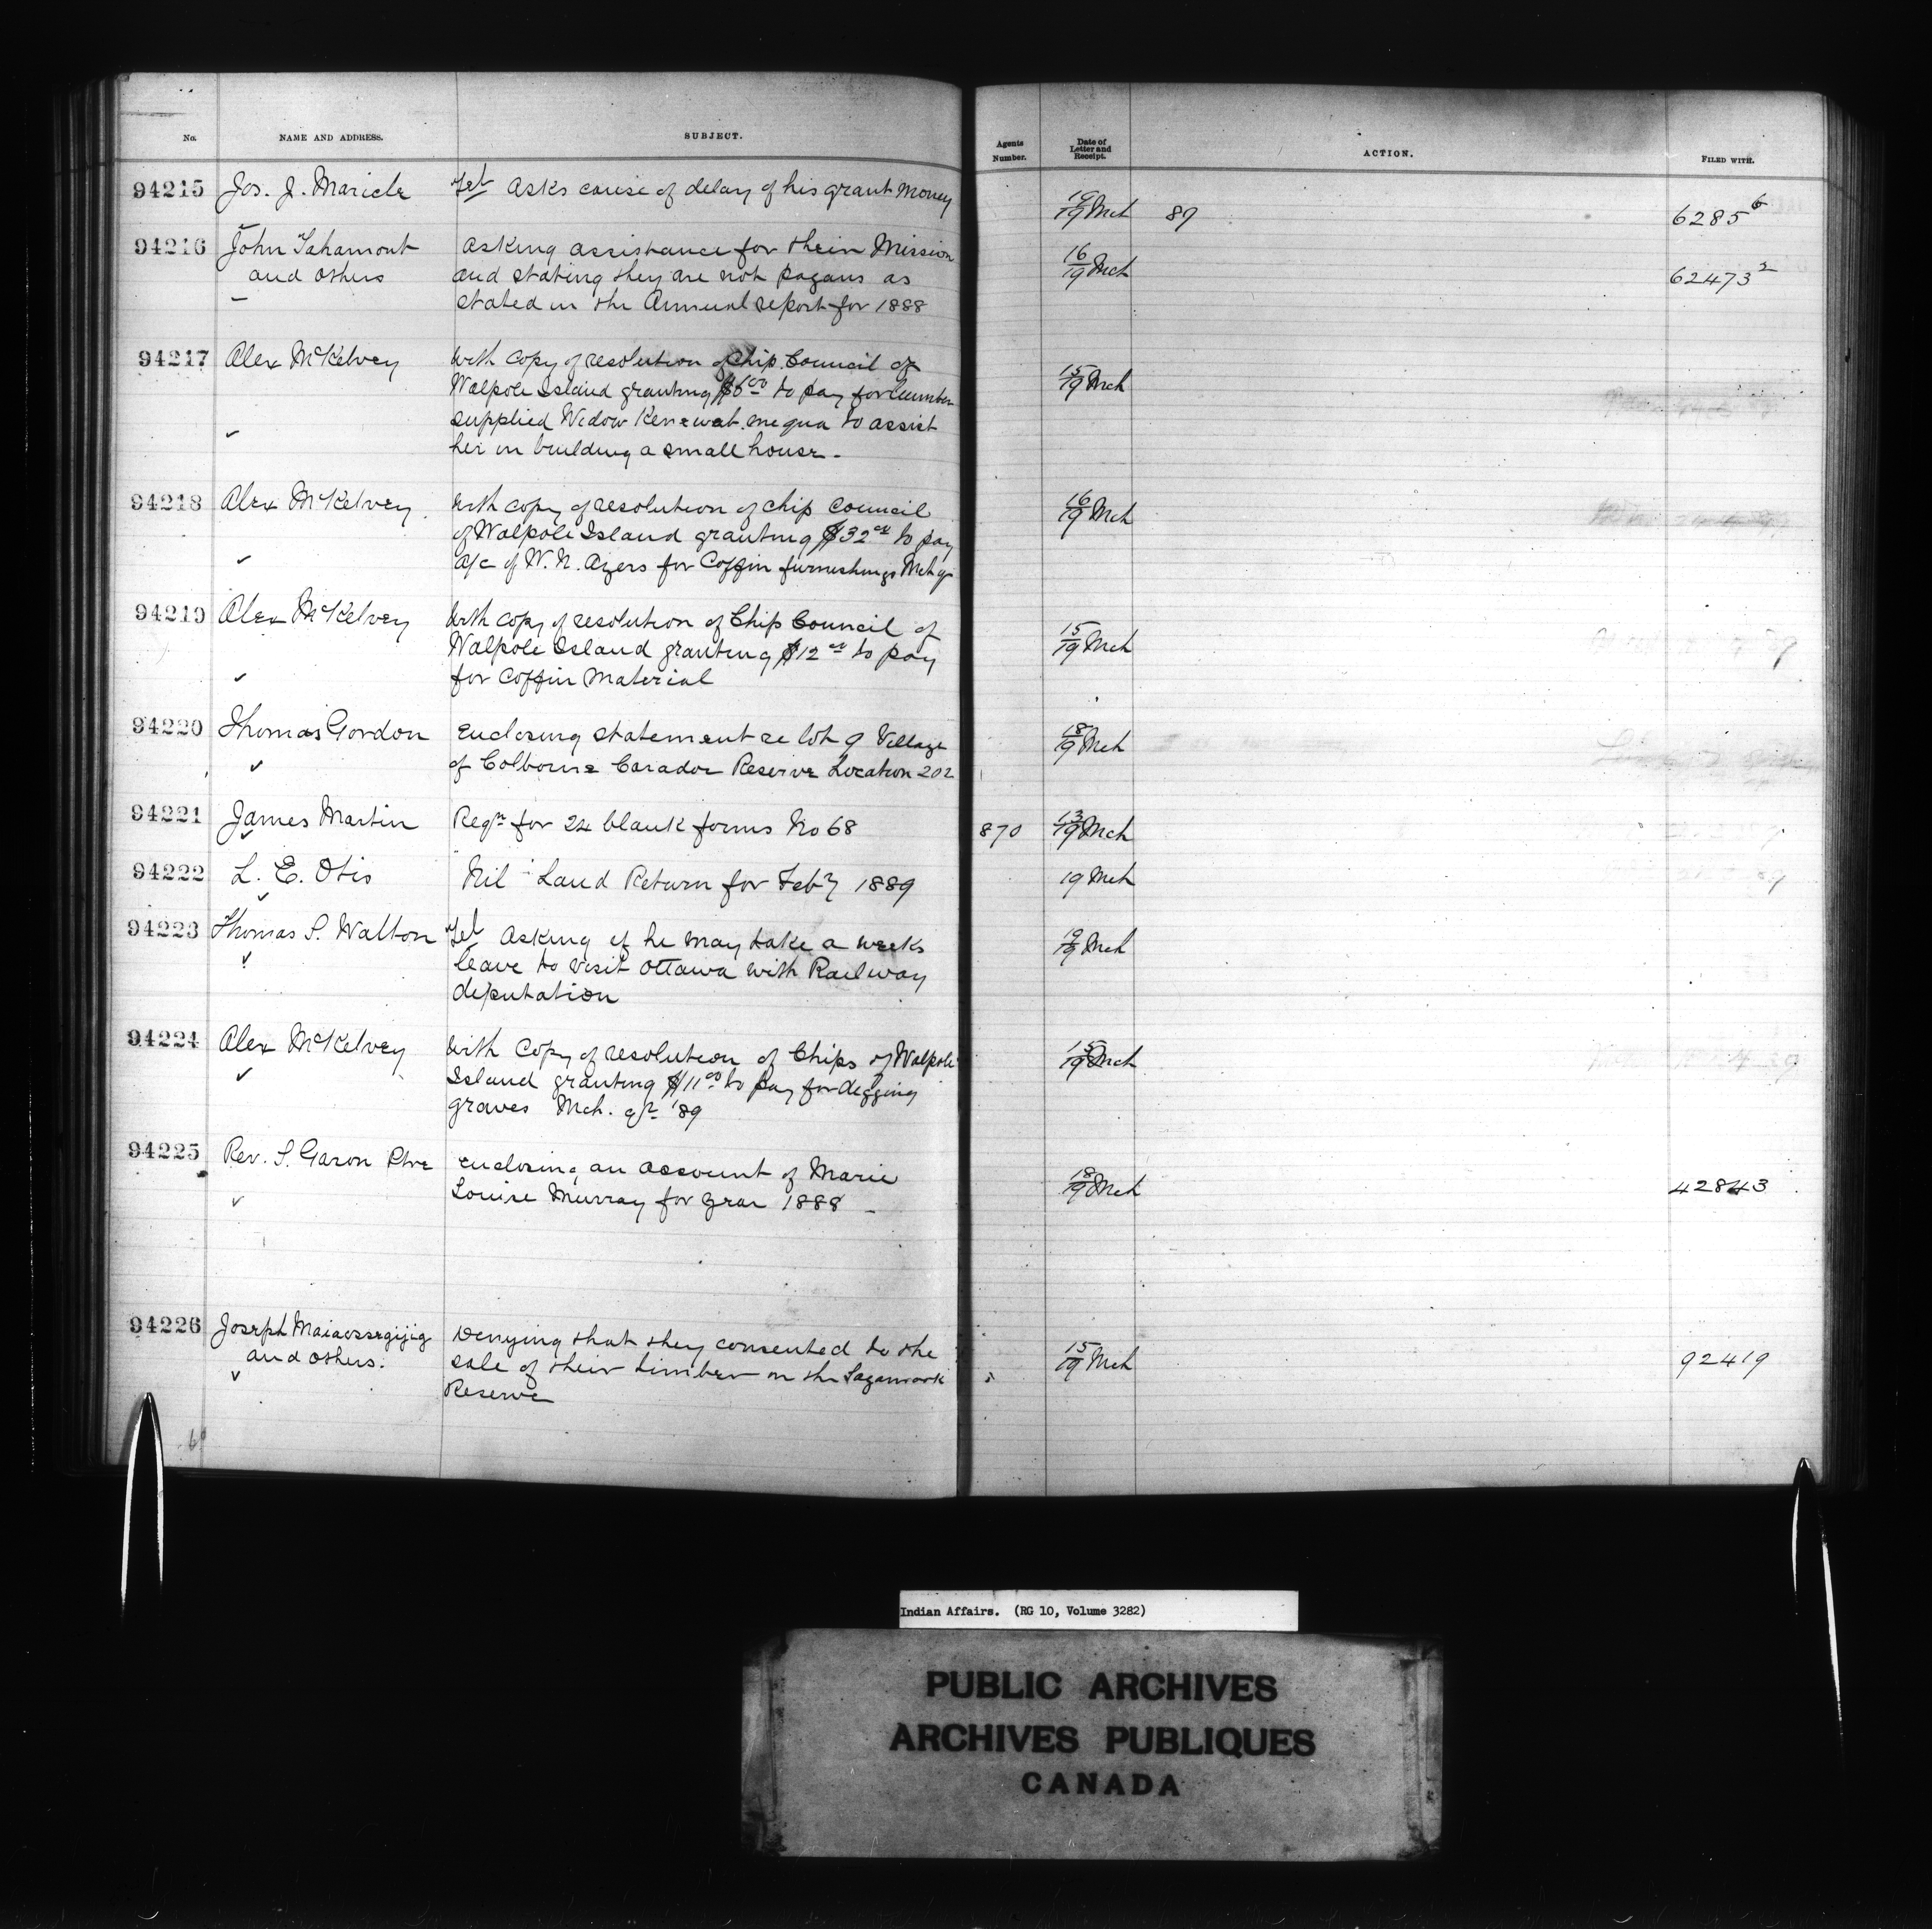 No. NAME AND ADDRESS. SUBJECT. Agents Number. Date of Letter and Receipt. ACTION. FILED WITH.
94215 Jos. J. Maricle Tel Asks cause of delay of his grant money 19/19 Mch 89 6285 6
94216 John Tahamont asking assistance for their Mission 16/19 Mch 62473 2
and others and stating they are not pagans as
stated in the Annual report for 1888
94217 Alex McKelvey with copy of resolution of Chip. Council of 15/19 Mch
Walpole Island granting $6 00 to pay for lumber
supplied Widow to assist
her in building a small house -
94218 Alex McKelvey with copy of resolution of chip council 16/19 Mch
of Walpole Island granting $32 to pay
a/c of W. N. Ayers for Coffin furnishings Mch qr
94219 Alex McKelvey with copy of resolution of Chip Council of 15/19 Mch
Walpole Island granting $12 to pay
for coffin material
94220 Thomas Gordon enclosing statement re lot 9 Village 18/19 Mch
of Colborne Carador Reserve Location 202
94221 James Martin Reqn for 24 blank forms No 68 870 13/19 Mch
94222 L. E. Otis Nil Land Return for Feby 1889 19 Mch
94223 Thomas S. Walton Tel Asking if he may take a weeks 19/19 Mch
leave to visit Ottawa with Railway
deputation
94224 Alex McKelvey with copy of resolution of Chips of Walpole 15/19 Mch
Island granting $11 00 to pay for digging
graves Mch. qr '89
94225 Rev. S. Garon Ptre enclosing an account of Marie 18/19 Mch 42843
Louise Murray for year 1888 -
94226 Joseph Denying that they consented to the 15/19 Mch 92419
and others. sale of their timber on the Sagamook
Reserve
Indian Affairs. (RG 10, Volume 3282)
PUBLIC ARCHIVES
ARCHIVES PUBLIQUES
CANADA